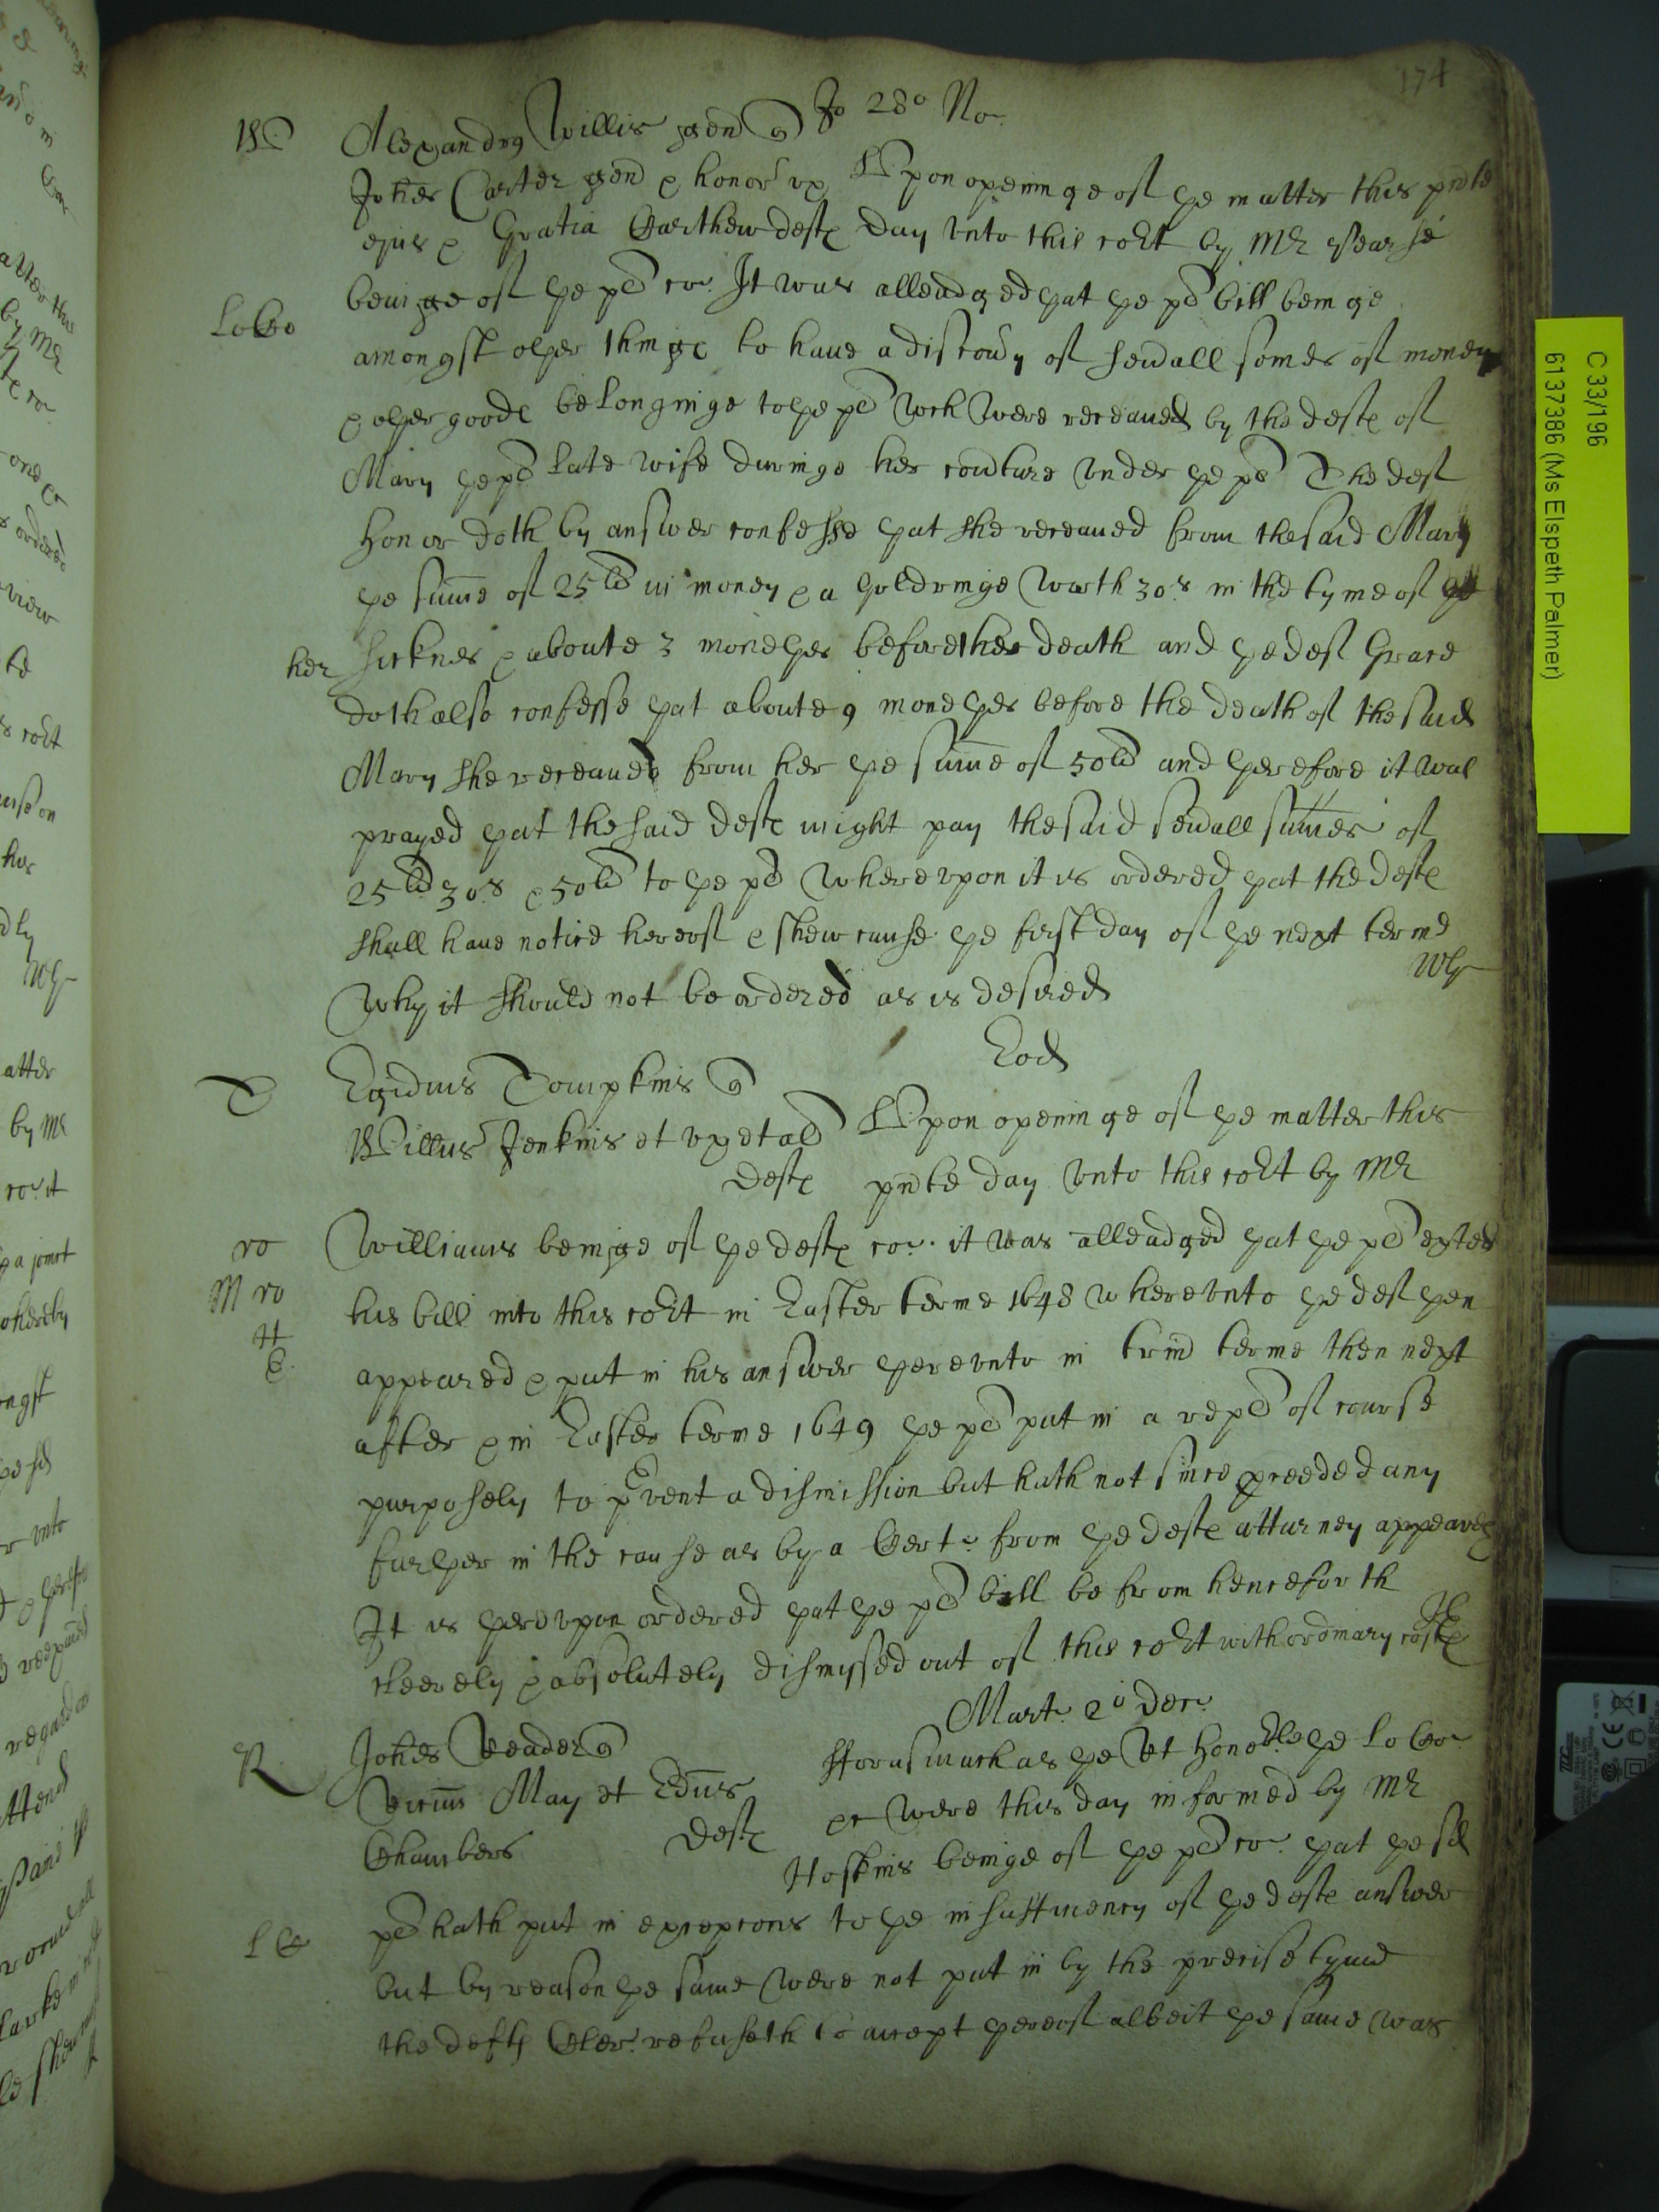 174
Jo 28o No.
W Alexandrus Willis gen qr
Johes Carter gen & honor ux Upon openinge of ye matter this pnte
ejus & Gratia Carthew defte day vnto this cort by Mr Pearse
beinge of ye plt co. It was alleadged yat ye plt bill beinge
LoCo
amongst oyer thinge to haue a discouy of seuall somes of money
& oyer goode belonginge to ye plt wch were receaued by the defte of
Mary ye plt late wife duringe her couture vnder ye plt The def
Honor doth by answer confesse yat she receaued from the said Mary
ye sume of 25li in money & a gold ringe worth 30s in the tyme of
her sicknes & aboute 3 moneyes before her death and ye def Grace
doth also confesse yat aboute 9 moneyes before the death of the said
Mary she receaued from her ye sume of 50li and yerefore it was
prayed yat the said defte might pay the said seuall sumes of
25li 30s & 50li to ye plt Wherevpon it is ordered yat the defte
shall haue notice hereof & shew cause ye first day of ye next terme
Why it should not be ordered as is desired
Wy
Eod
T Egidius Tompkins qr
Willus Jenkins et ux et al Upon openinge of ye matter this
defte pnte day vnto this cort by Mr
ro Williams beinge of ye defte co. it was alleadged yat ye plt exhted
M ro his bill into this cort in Easter terme 1648 wherevnto ye def yen
H
appeared & put in his answer yerevnto in trin terme then next
after & in Easter terme 1649 ye plt put in a repl of course
purposely to pvent a dismission but hath not since pceeded any
furyer in the cause as by a Certe from ye defte atturney appeares
It is yerevpon ordered yat ye plt bill be from henceforth
cleerely & absolutely dismyssed out of this cort with ordinary coste
Mart. 2o Dec.
R Johes Reader qr
fforasmuch as ye Rt honoble ye Lo Co
May et Edus
Chambers defte
&c were this day informed by Mr
Hoskins beinge of ye plt co. yat ye sd
plt hath put in excepcons to ye insufficiency of ye defte answer
LC
but by reason ye same were not put in by the precise tyme
the defts Cler. refuseth to accept yereof albeit ye same was
C 33/196
6137386 (Ms Elspeth Palmer)